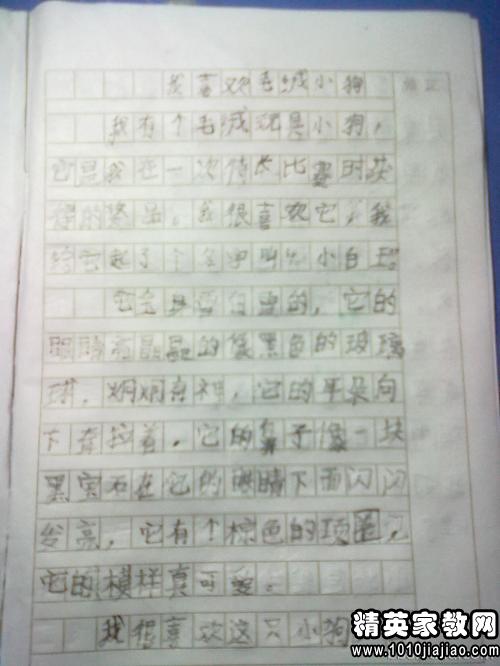 我喜欢毛绒小狗
修正
我有个毛绒玩具小狗，
它是我在一次特长比赛时获
得的奖品，我很喜欢它，我
给它起了个名字叫先小白
它全身雪白雪白的，它的
眼睛亮晶晶的像黑色的玻璃
球，炯炯有神，它的耳朵向
下耷拉着，它的鼻子像一块
黑宝石在它的眼睛下面闪闪
发亮，它有个棕色的项圈，
它的模样真可爱。
我很喜欢这只小狗
精英家教网
www.1010jiajiao.com